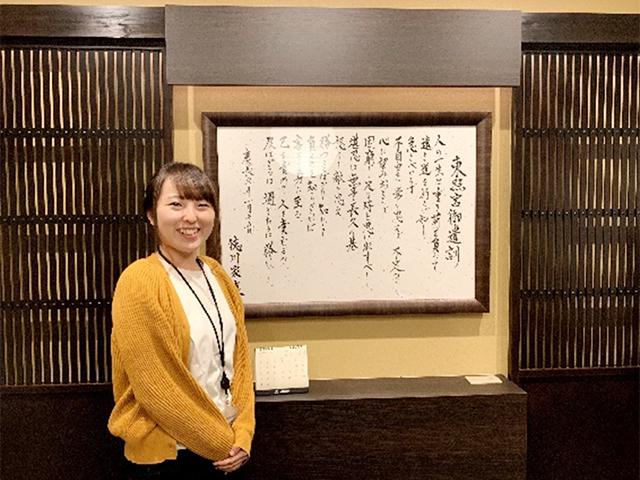 東照宮御遺訓
人の一生は重き荷を負うて
遠き道を行くが如し
急ぐべからず
不自由を常と思へば不足なし
心に望み起らば
困窮したる時を思ひ出すべし
堪忍は無事長久の基
怒りは敵と思へ
勝つ事ばかり知りて
負くる事を知らざれば
害其の身に至る
己を責めて人を責むるな
及ばざるは過ぎたるより勝れり
徳川家康